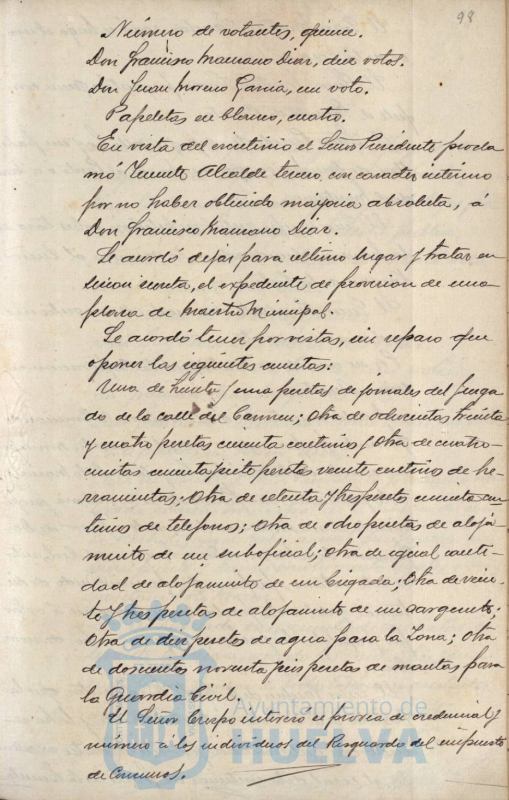 98
Número de votantes, quince.
Don Francisco Mamano Diaz, diez votos.
Don Juan Moreno Garcia, un voto.
Papeletas en blanco, cuatro.
En vista del escrutinio el Señor Presidente procla
mó Teniente Alcalde tercero, con caracter interino
por no haber obtenido mayoria absoluta, á
Don Francisco Mamano Diaz.
Se acordó dejar para ultimo lugar y tratar en
sesion secreta, el expediente de provision de una
plaza de Maestro Municipal.
Se acordó tener por vistas, sin reparo que
oponer las siguientes cuentas:
Una de treinta y una pesetas de jornales del
do de la calle del Carmen; Otra de ochocientas treinta
y cuatro pesetas cincuenta centimos; Otra de cuatro-
cientas cincuenta y siete pesetas veinte centimos de he-
rramientas; Otra de setenta y tres pesetas cincuenta cen-
timos de telefonos; Otra de ocho pesetas de aloja-
miento de un suboficial; otra de igual canti-
dad de alojamiento de un Brigada; Otra de vein-
te y tres pesetas de alojamiento de un sargento;
Otra de diez pesetas de agua para la Zona; Otra
de doscientos noventa y seis pesetas de mantas para
la Guardia Civil.
El Señor Crespo intereso se provea de credencial y
número á los individuos del Resguardo del impuesto
de Consumos.
Ayuntamiento de
HUELVA